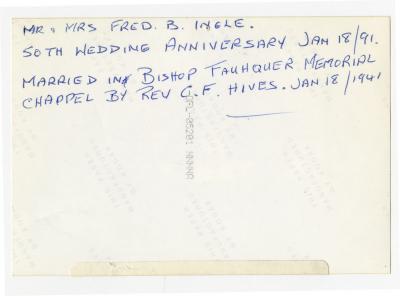 MR & MRS FRED. B. INGLE.
50TH WEDDING ANNIVERSARY JAN 18/91.
MARRIED IN BISHOP FAUHQUER MEMORIAL
CHAPPEL BY REV C.F. HIVES. JAN 18/1941